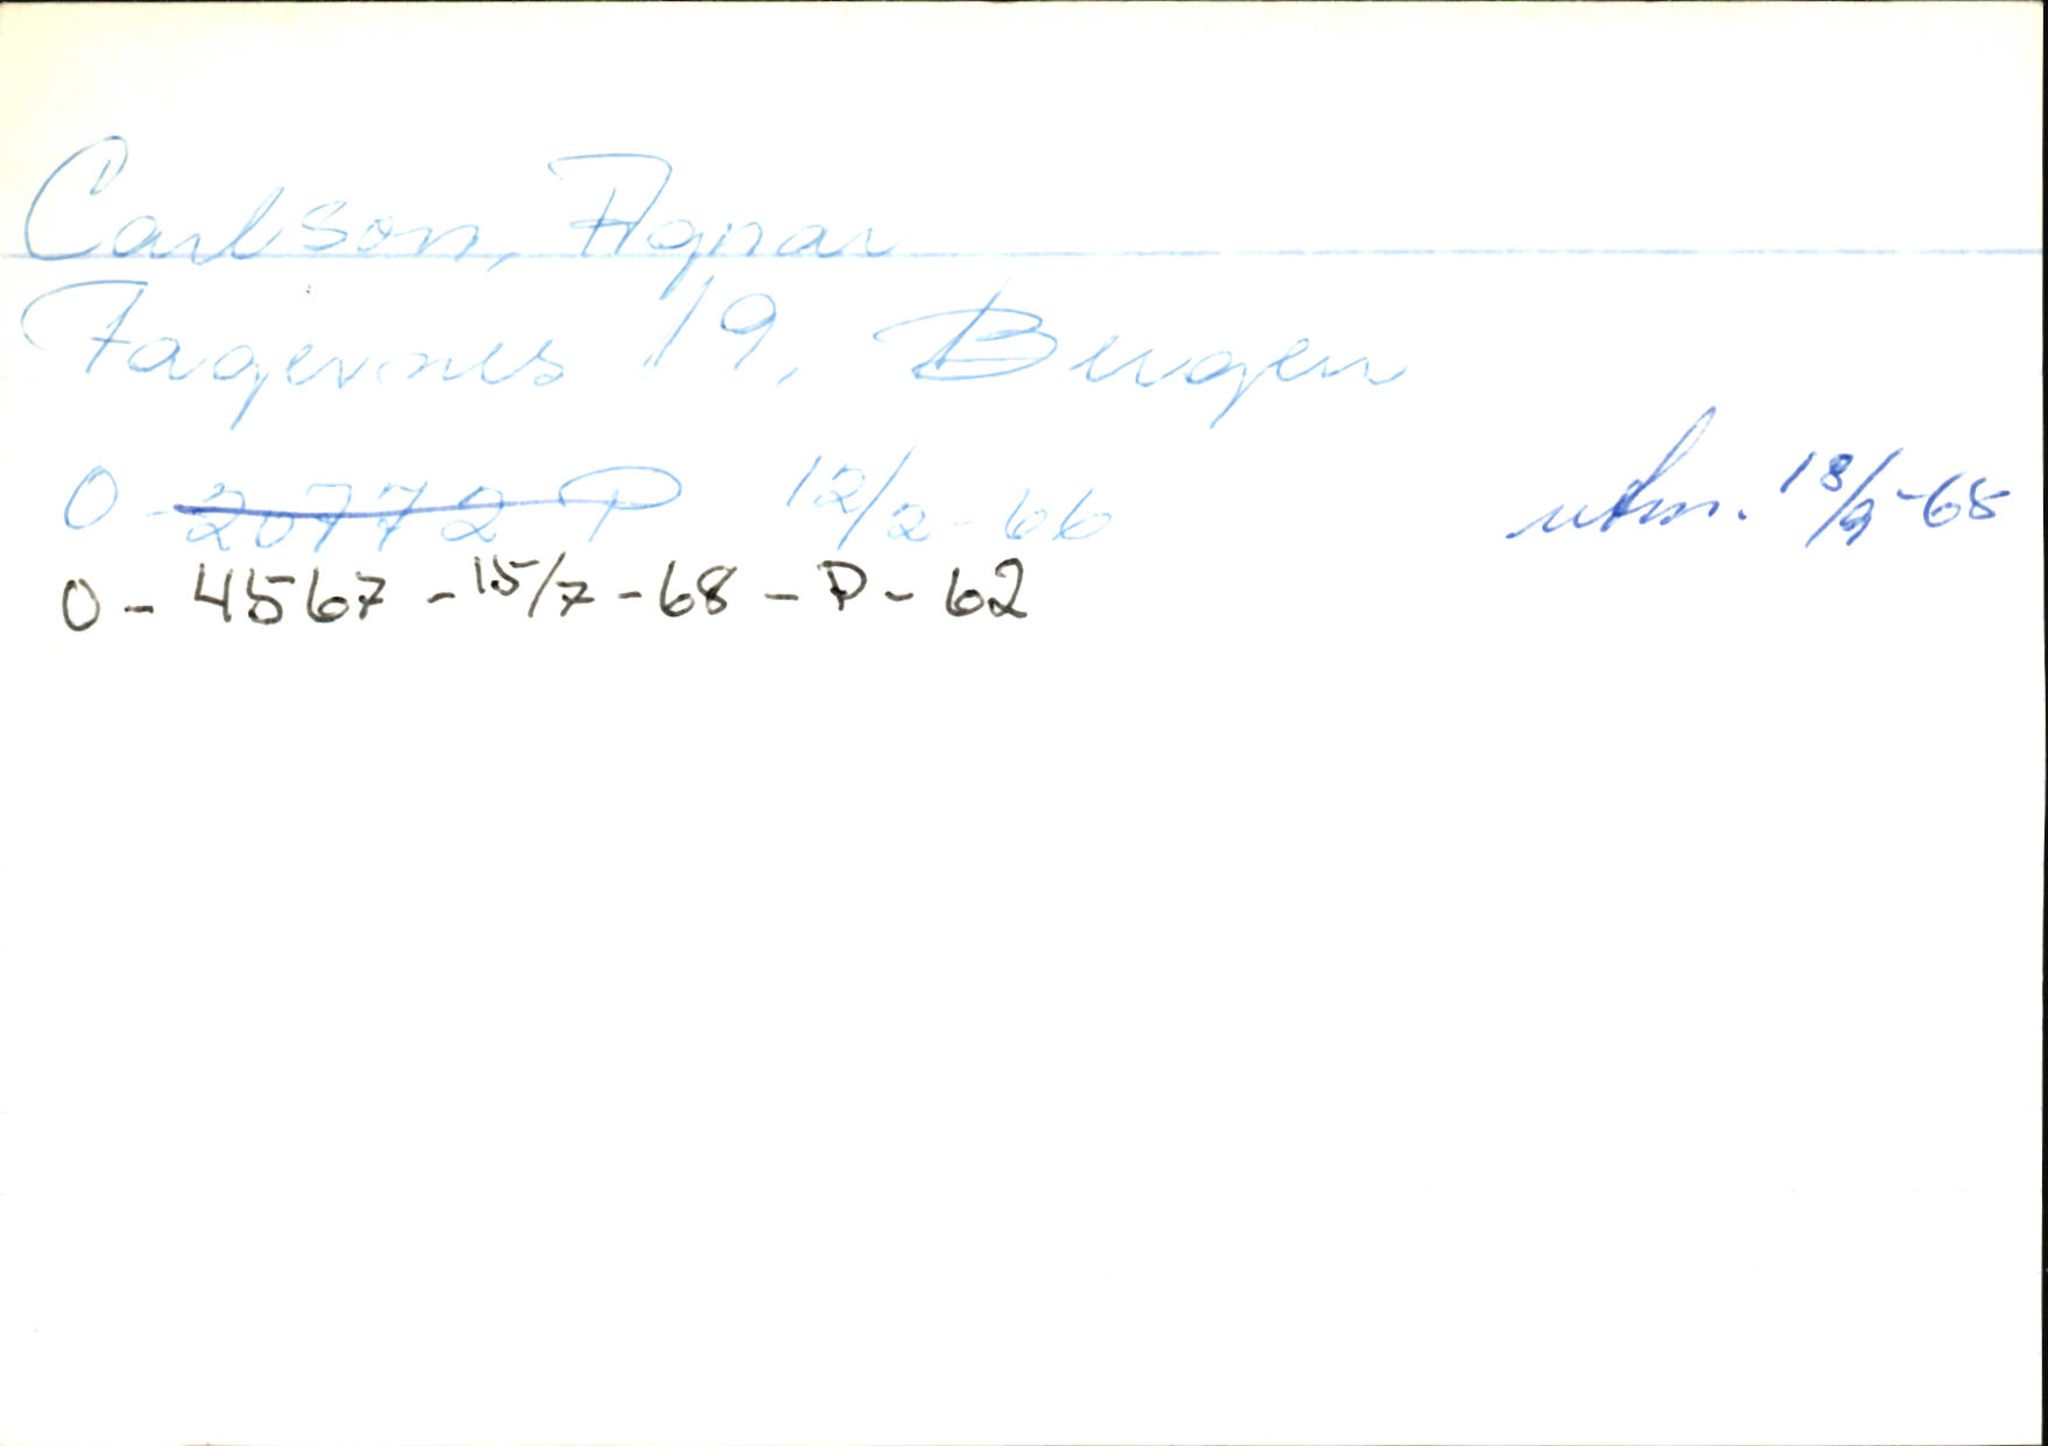 Carlson, Agnar
Fagernes 19, Bergen
0 - 20772 P 12/2-66 utm. 18/9-65
0 - 4567 - 15/7 - 68 - P - 62